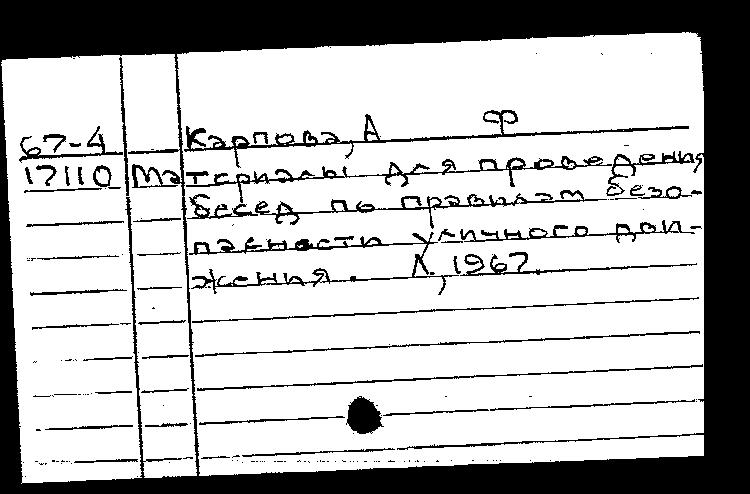 67-4 Карпова, А ф
17110 Материалы для проведения
бесед по правилам безо-
пасности уличного дви-
жения. Л., 1967.